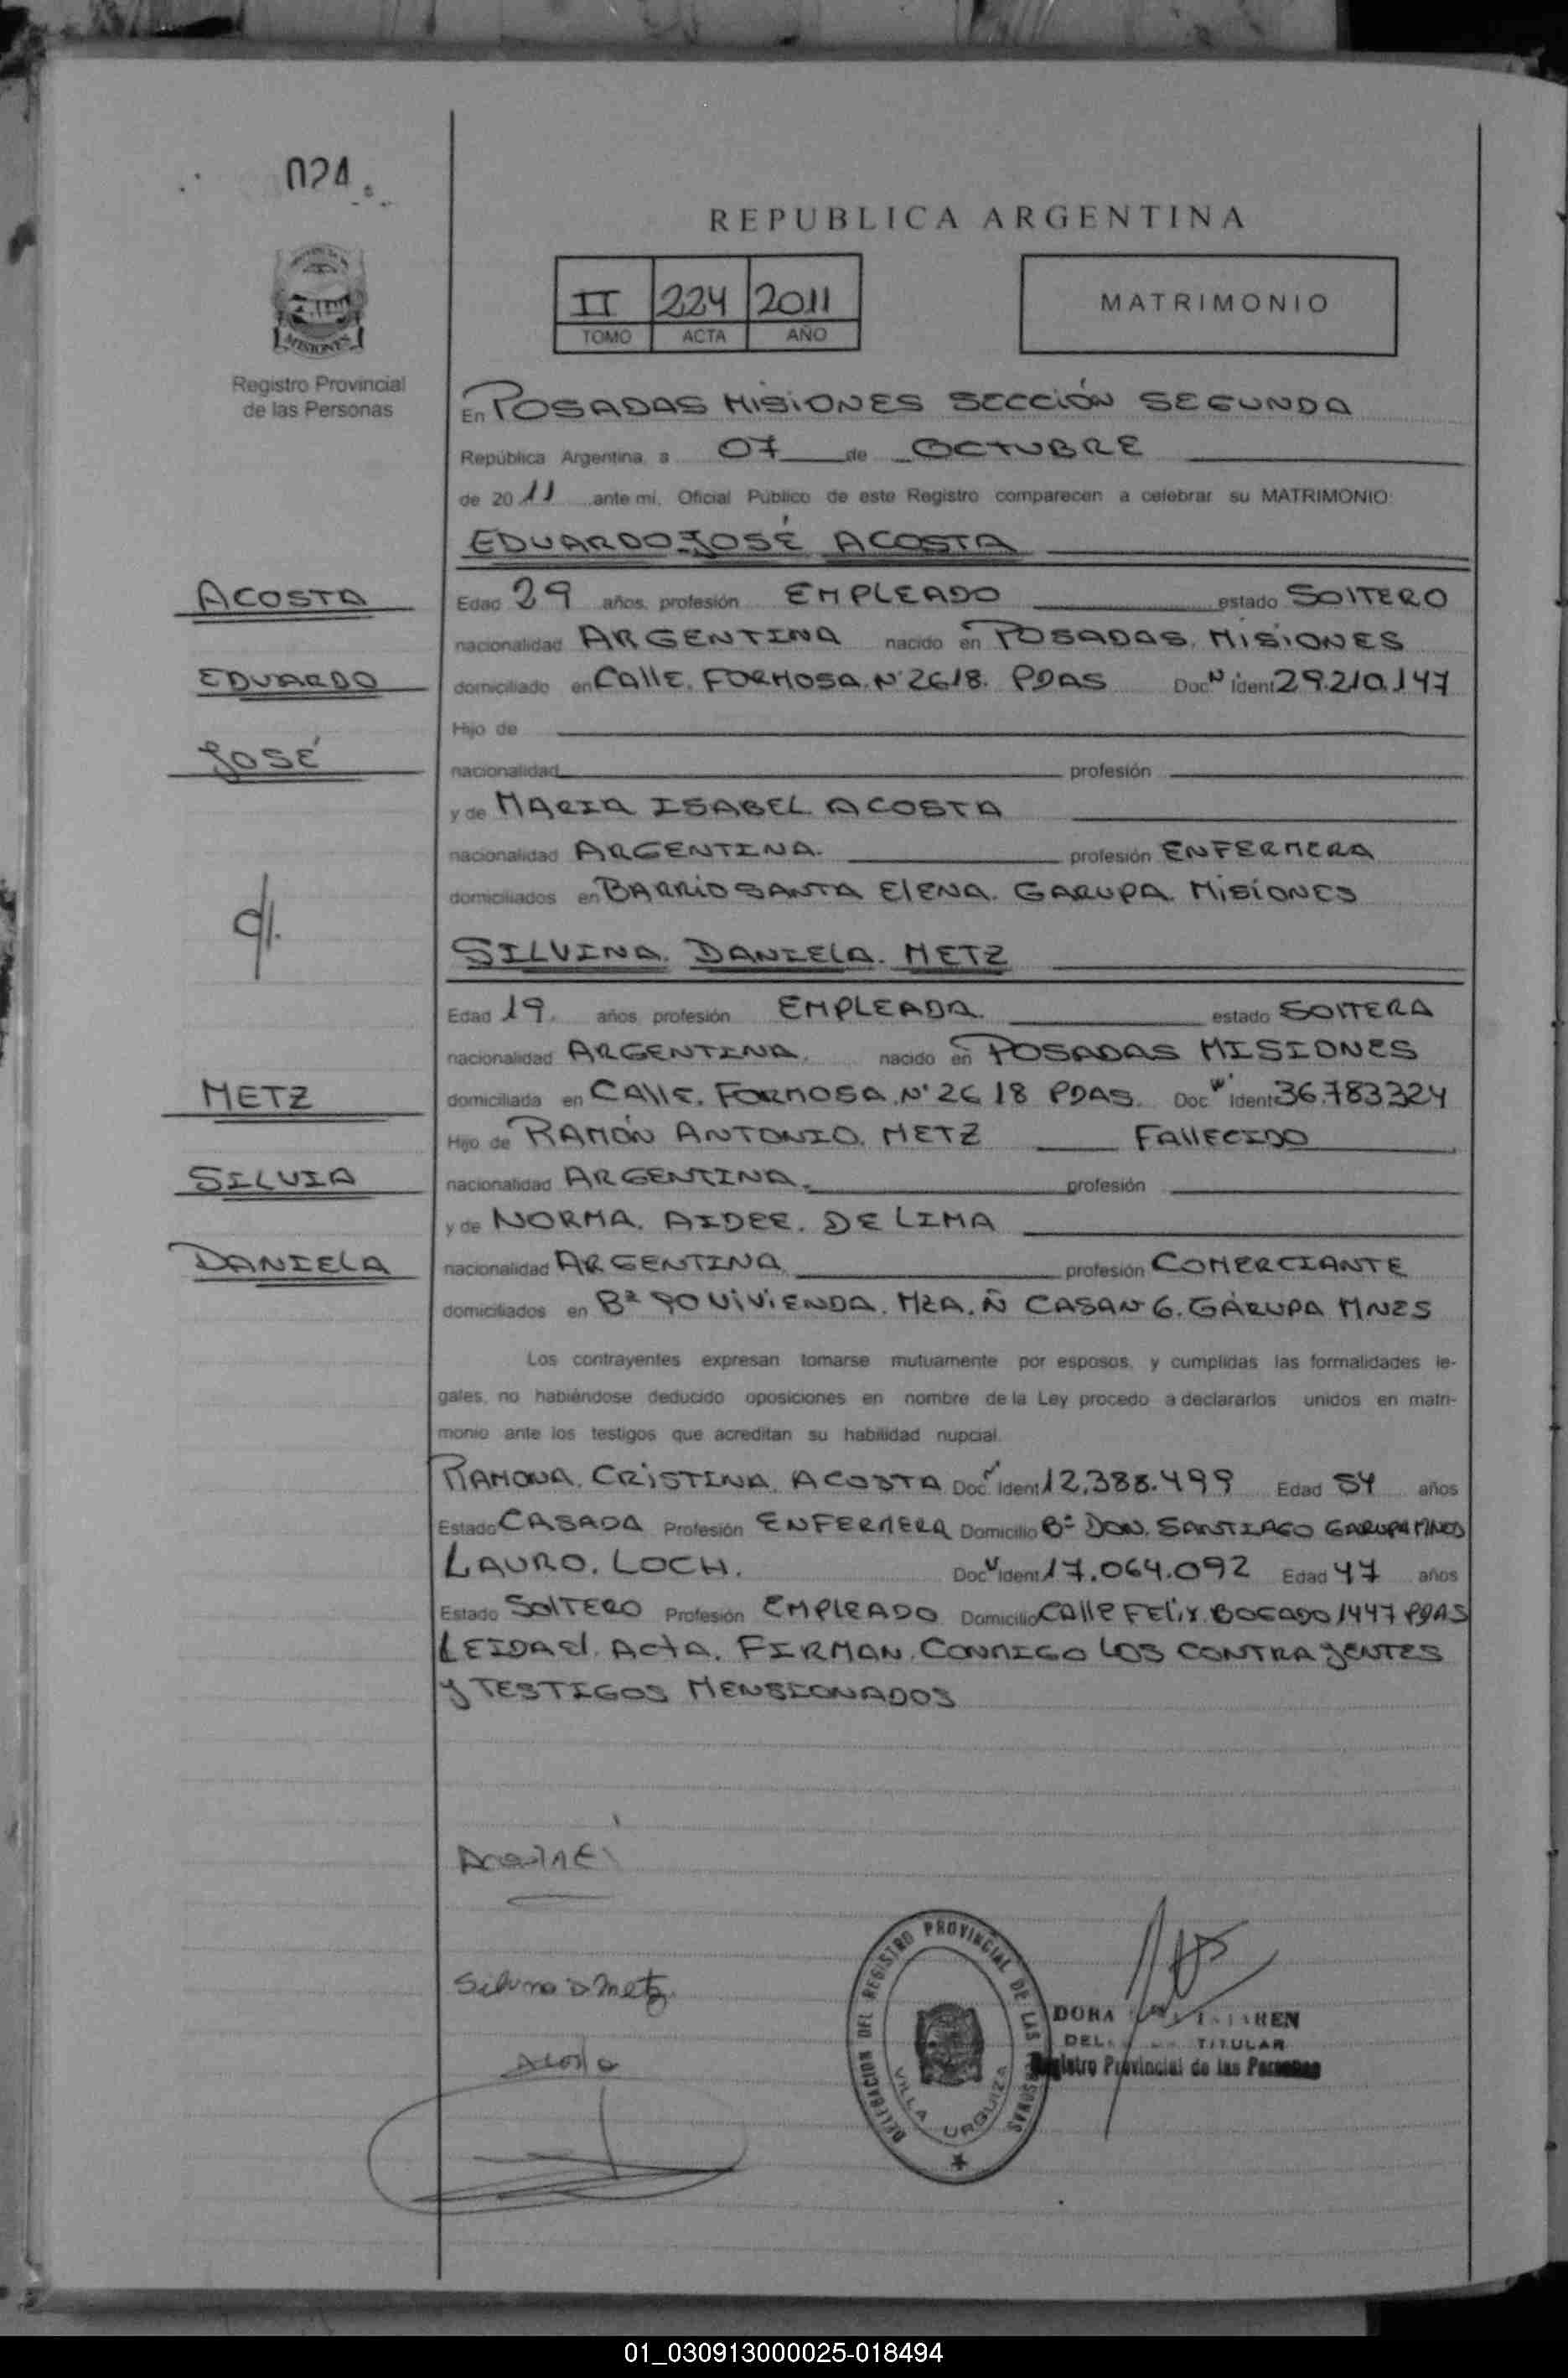 024
REPUBLICA ARGENTINA
II 224 2011
TOMO ACTA AÑO
MATRIMONIO
MISIONES
Registro Provincial
de las Personas
En POSADAS MISIONES SECCIÓN SEGUNDA
República Argentina, a 07 de OCTUBRE
de 2011 ante mi, Oficial Público de este Registro comparecen a celebrar su MATRIMONIO:
EDUARDO JOSÉ ACOSTA
ACOSTA
EDUARDO
JOSÉ
Edad 29 años, profesión EMPLEADO estado SOLTERO
nacionalidad ARGENTINA nacido en POSADAS. MISIONES
domiciliado en CALLE. FORMOSA. Nº 2618. PDAS Doc. N Ident 29.210.147
Hijo de
nacionalidad profesión
y de MARIA ISABEL ACOSTA
nacionalidad ARGENTINA. profesión ENFERMERA
domiciliados en BARRIO SANTA ELENA. GARUPA. MISIONES
SILVINA. DANIELA. METZ
METZ
SILVIA
DANIELA
Edad 19. años profesión EMPLEADA. estado SOLTERA
nacionalidad ARGENTINA. nacido en POSADAS MISIONES
domiciliada en CALLE. FORMOSA. Nº 2618 PDAS. Doc N Ident 36.783324
Hijo de RAMÓN ANTONIO. METZ FALLECIDO
nacionalidad ARGENTINA. profesión
y de NORMA. AIDEE. DE LIMA
nacionalidad ARGENTINA profesión COMERCIANTE
domiciliados en Bº 90 VIVIENDA. MZA. Ñ CASA N 6. GARUPA MNES
Los contrayentes expresan tomarse mutuamente por esposos, y cumplidas las formalidades le-
gales, no habiéndose deducido oposiciones en nombre de la Ley procedo a declararlos unidos en matri-
monio ante los testigos que acreditan su habilidad nupcial.
RAMONA. CRISTINA. ACOSTA Doc. N Ident 12.388.499 Edad 54 años
Estado CASADA Profesión ENFERMERA Domicilio Bº DON. SANTIAGO GARUPA MNES
LAURO. LOCH. Doc N Ident 17.064.092 Edad 47 años
Estado SOLTERO Profesión EMPLEADO Domicilio CALLE FELIX. BOGADO 1447 PDAS
LEIDA EL ACTA. FIRMAN. CONMIGO LOS CONTRAYENTES
Y TESTIGOS MENSIONADOS
Silvina D Metz
Acosta
DELEGACION DEL REGISTRO PROVINCIAL DE LAS PERSONAS
VILLA URQUIZA
DORA
TITULAR
Registro Provincial de las Personas
01_030913000025-018494